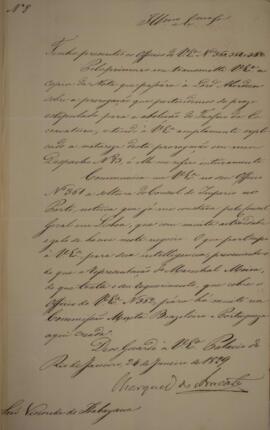 Nº 8
Illmo Exmo Snr
Tenho presente os Officios de V.Exa Nos 360, 361, 362
Pelo primeiro me transmitte V.Exa a
copia da Nota que passára a Lord Aberdeen
sobre a prorogação que pertendemos do prazo
estipulado para a abolição do Trafico da Es-
cravatura, e tendo a V.Exa amplamente expli-
cado a materia desta prorogação em meu
Despacho Nº 3, a elle me refiro inteiramente
Communica me V.Exa no seu Officio
Nº 361 a soltura do Consul do Imperio no
Porto, noticia que já me constava pelo Consul
Geral em Lisboa, que com muita actividade
e zelo se houve neste negocio. O que participo
a V.Exa para sua intelligencia, prevenindo-o
de que a Representação do Marechal Moura,
de que trata o seu requerimento, que cobrio o
Officio de V.Exa Nº 362, já não ha na
Commissão Mixta Brazileira e Portugueza
aqui creada.
Deos Guarde a V.Exa Palacio do
Rio de Janeiro, 24 de Janeiro de 1829
Marquez do Aracaty
Snr Visconde de Itabayana